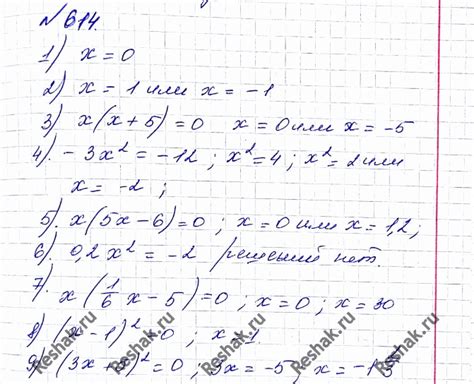 №614.
1) x = 0
2) x = 1 или x = -1
3) x(x+5) = 0 x = 0 или x = -5
4). -3x² = -12 ; x² = 4 ; x² = 2 или
x = -2 ;
5). x(5x-6) = 0 ; x = 0 или x = 1,2 ;
6). 0,2x² = -2 решений нет.
7). x(1/6 x - 5) = 0 ; x = 0 ; x = 30
8) (x-1)² = 0 ; x = 1
9) (3x + )² = 0 ; 3x = -5 x = -1
Reshak.ru
Reshak.ru
Reshak.ru
Reshak.ru